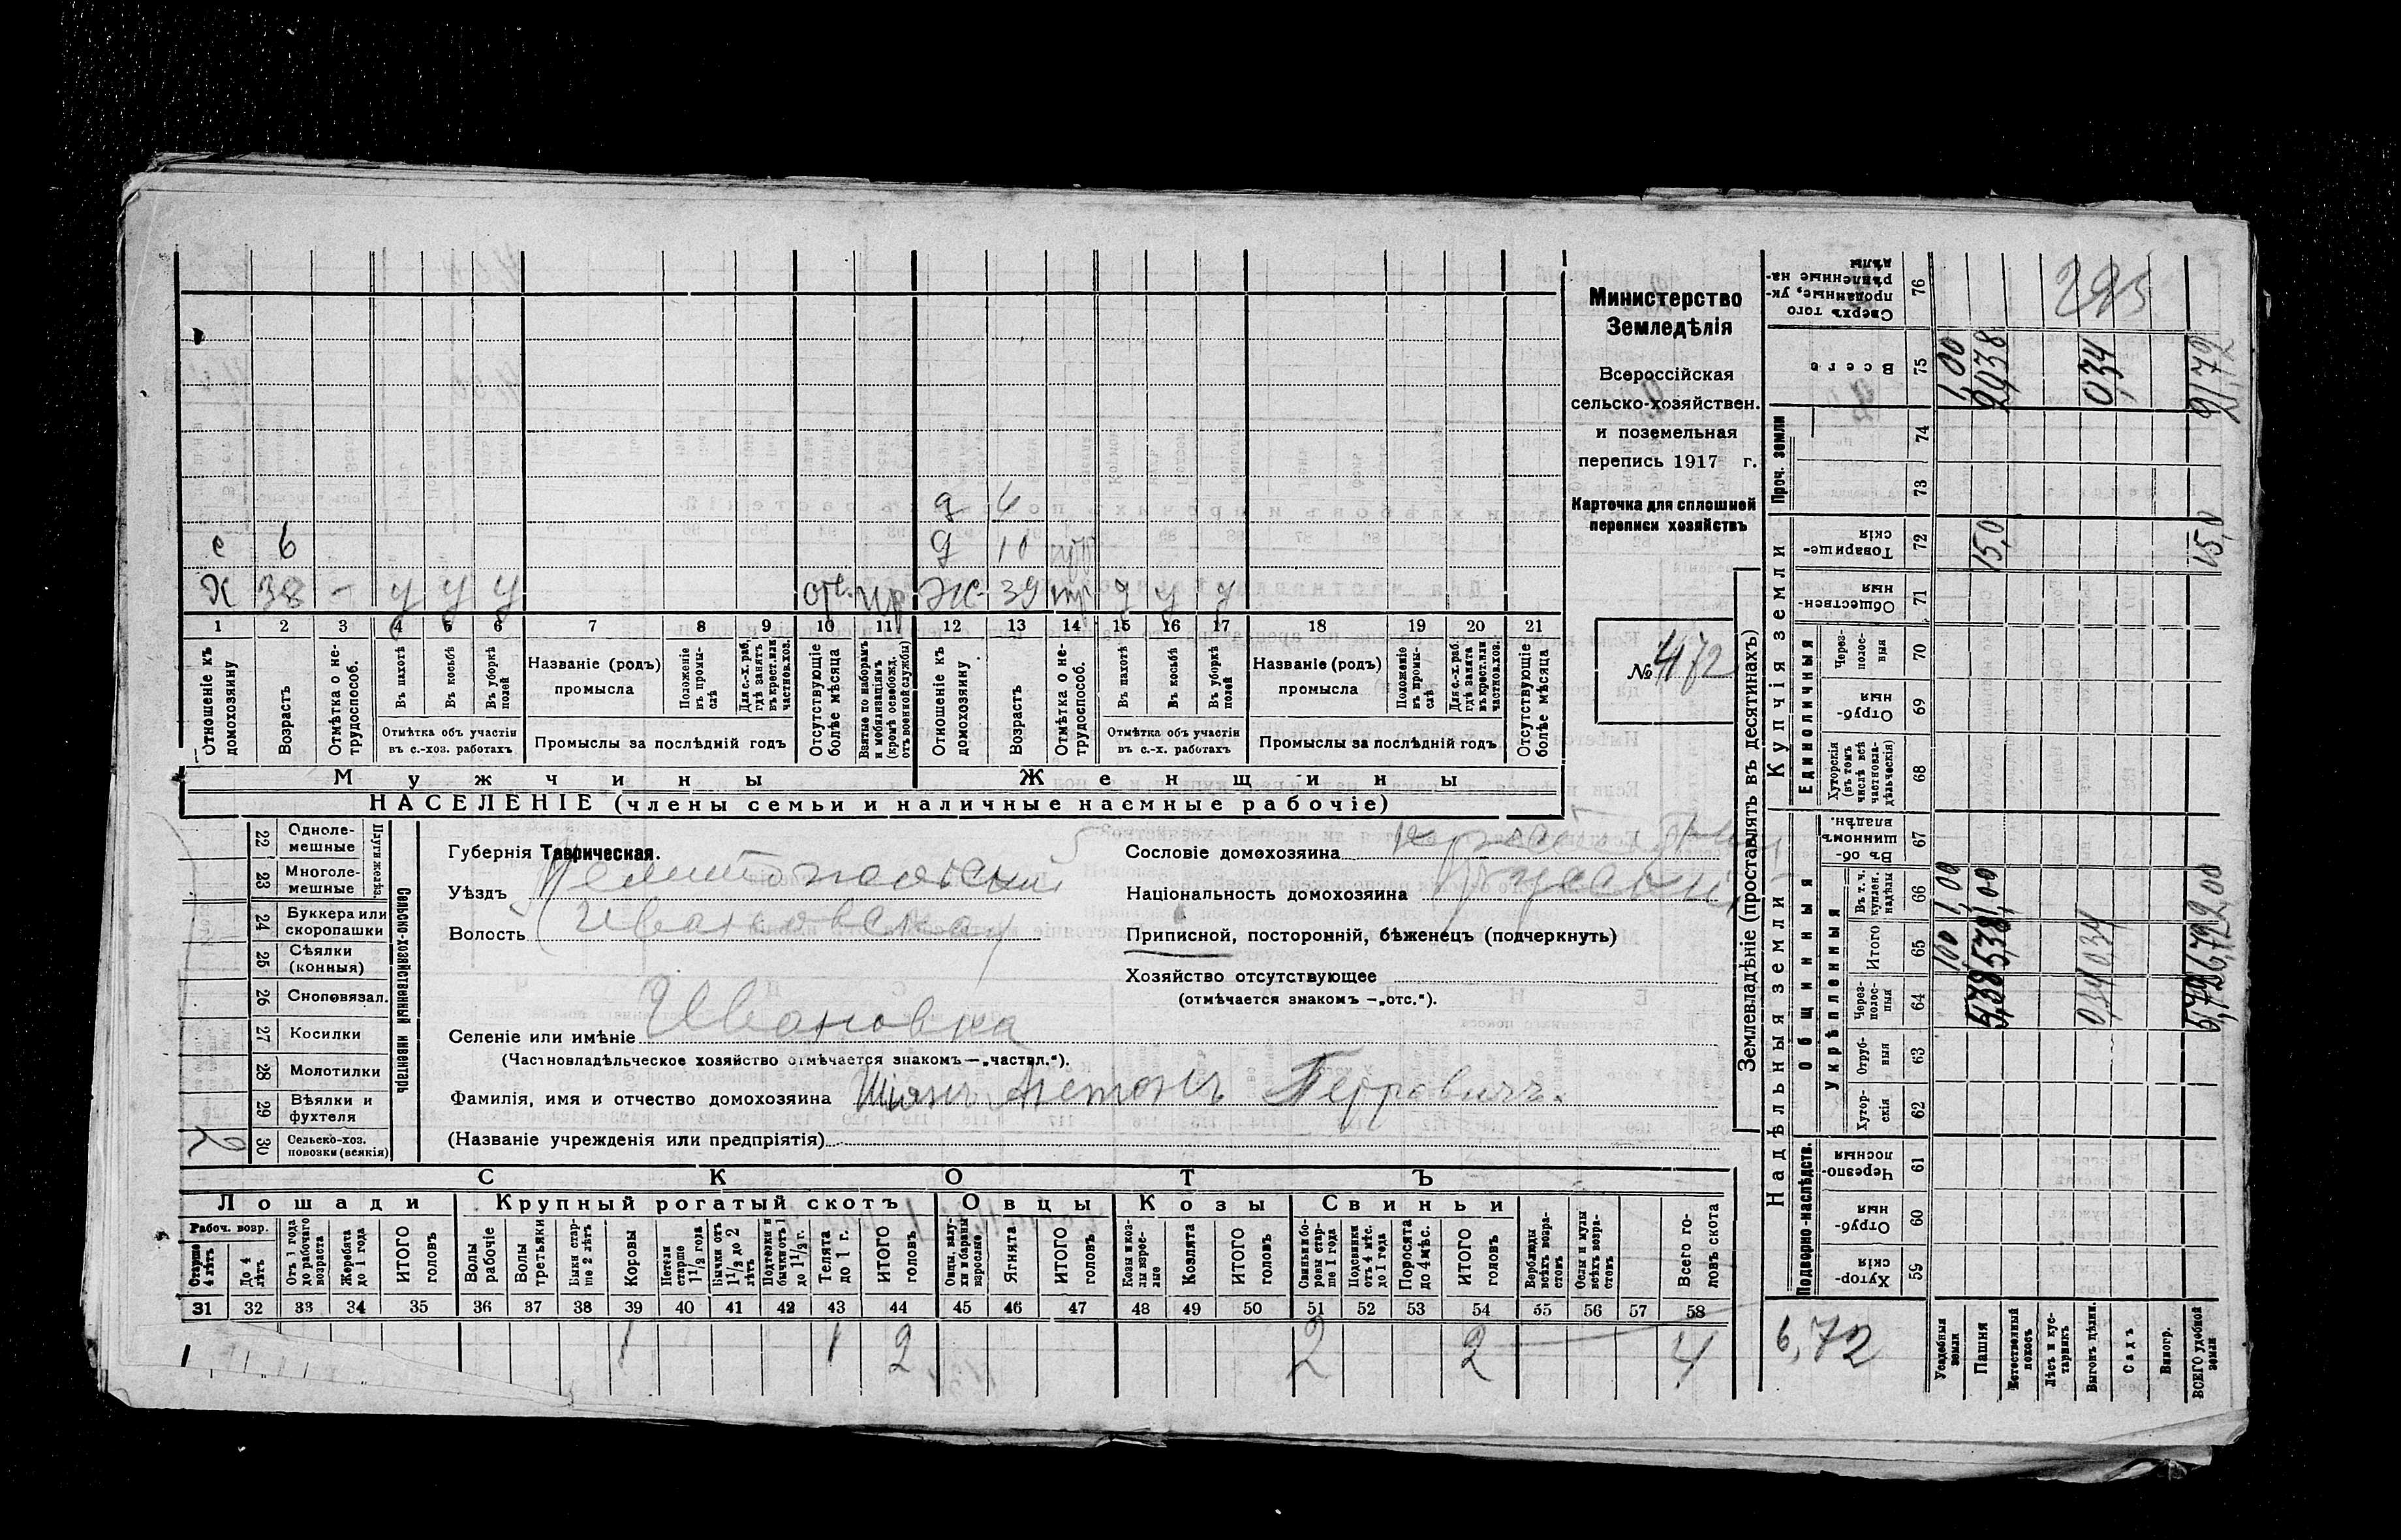 Министерство
Земледѣлія
Всероссійская
сельско-хозяйствен.
и поземельная
перепись 1917 г.
Карточка для сплошной
переписи хозяйствъ
№ 4172
д 4
с 6 д 10
Х 38 – у у у отс. пр Ж 39 у у у
1 2 3 4 5 6 7 8 9 10 11 12 13 14 15 16 17 18 19 20 21
Отношеніе къ домохозяину
Возрастъ
Отмѣтка о не-трудоспособ.
Въ пахотѣ
Въ косьбѣ
Въ уборкѣ полей
Отмѣтка объ участіи въ с.-хоз. работахъ
Названіе (родъ) промысла
Положеніе въ промы-слѣ
Для с.-х. раб. гдѣ занятъ въ крест. или частнов. хоз.
Промыслы за послѣдній годъ
Отсутствующіе болѣе мѣсяца
Взятые по наборамъ и мобилизаціямъ (кромѣ освобожд. отъ военной службы)
Отношеніе къ домохозяину
Возрастъ
Отмѣтка о не-трудоспособ.
Въ пахотѣ
Въ косьбѣ
Въ уборкѣ полей
Отмѣтка объ участіи въ с.-х. работахъ
Названіе (родъ) промысла
Положеніе въ промы-слѣ
Для с.-х. раб. гдѣ занята въ крест. или частнов. хоз.
Промыслы за послѣдній годъ
Отсутствующіе болѣе мѣсяца
Мужчины Женщины
НАСЕЛЕНІЕ (члены семьи и наличные наемные рабочіе)
Сельско-хозяйственный инвентарь
Плуги желѣз.
22 Одноле-мешные
23 Многоле-мешные
24 Буккера или скоропашки
25 Сѣялки (конныя)
26 Сноповязал.
27 Косилки
28 Молотилки
29 Вѣялки и фухтеля
30 Сельско-хоз. повозки (всякія)
Губернія Таврическая.
Уѣздъ Мелитопольскій
Волость Ивановская
Селеніе или имѣніе Ивановка
(Частновладѣльческое хозяйство отмѣчается знакомъ — „частвл.“).
Фамилія, имя и отчество домохозяина Антонъ Петровичъ.
(Названіе учрежденія или предпріятія)
Сословіе домохозяина
Національность домохозяина русскій
Приписной, посторонній, бѣженецъ (подчеркнуть)
Хозяйство отсутствующее
(отмѣчается знакомъ — „отс.“).
СКОТЪ
Лошади Крупный рогатый скотъ Овцы Козы Свиньи
Рабоч. возр.
Старше 4 лѣтъ
До 4 лѣтъ
Отъ 1 года до рабочаго возраста
Жеребята до 1 года
ИТОГО головъ
Волы рабочіе
Волы третьяки
Быки стар-ше 2 лѣтъ
Коровы
Нетели старше 1 1/2 года
Бычки отъ 1 1/2 до 2 лѣтъ
Подтелки и бычки отъ 1 до 1 1/2 г.
Телята до 1 г.
ИТОГО головъ
Овцы, валу-хи и бараны взрослые
Ягнята
ИТОГО головъ
Козы и коз-лы взрос-лые
Козлята
ИТОГО головъ
Свиньи и бо-ровы стар-ше 1 года
Подсвинки отъ 4 мѣс. до 1 года
Поросята до 4 мѣс.
ИТОГО головъ
Верблюды всѣхъ возра-стовъ
Ослы и мулы всѣхъ возра-стовъ
Всего го-ловъ скота
31 32 33 34 35 36 37 38 39 40 41 42 43 44 45 46 47 48 49 50 51 52 53 54 55 56 57 58
1 1 2 2 2 4
Землевладѣніе (проставлять въ десятинахъ)
Сверхъ того проданные, ук-рѣпленные на-дѣлы 76
295
Всего 75 1,00 2038 0,34 21,72
Проч. земли 74 73
Купчія земли
Товарище-скія 72 15,0 15,0
Обществен-ныя 71
Единоличныя
Через-полос-ныя 70
Отруб-ныя 69
Хуторскія (въ томъ числѣ всѣ частновла-дѣльческія) 68
Надѣльныя земли
Общинныя
Въ об-щинномъ владѣн. 67
Укрѣпленныя
Въ т. ч. куплен. надѣлы 66 1,00 1,00 2,00
Итого 65 1,00 5,38 0,34 6,72
Через-полос-ныя 64 5,38 0,34
Отруб-ныя 63
Хутор-скія 62
Подворно-наслѣдств.
Черезпо-лосныя 61
Отруб-ныя 60
Хутор-скія 59
6,72
Усадебныя земли
Пашня
Естественный покосъ
Лѣсъ и кус-тарникъ
Выгонъ дѣли.
Садъ
Виногр.
ВСЕГО удобной земли